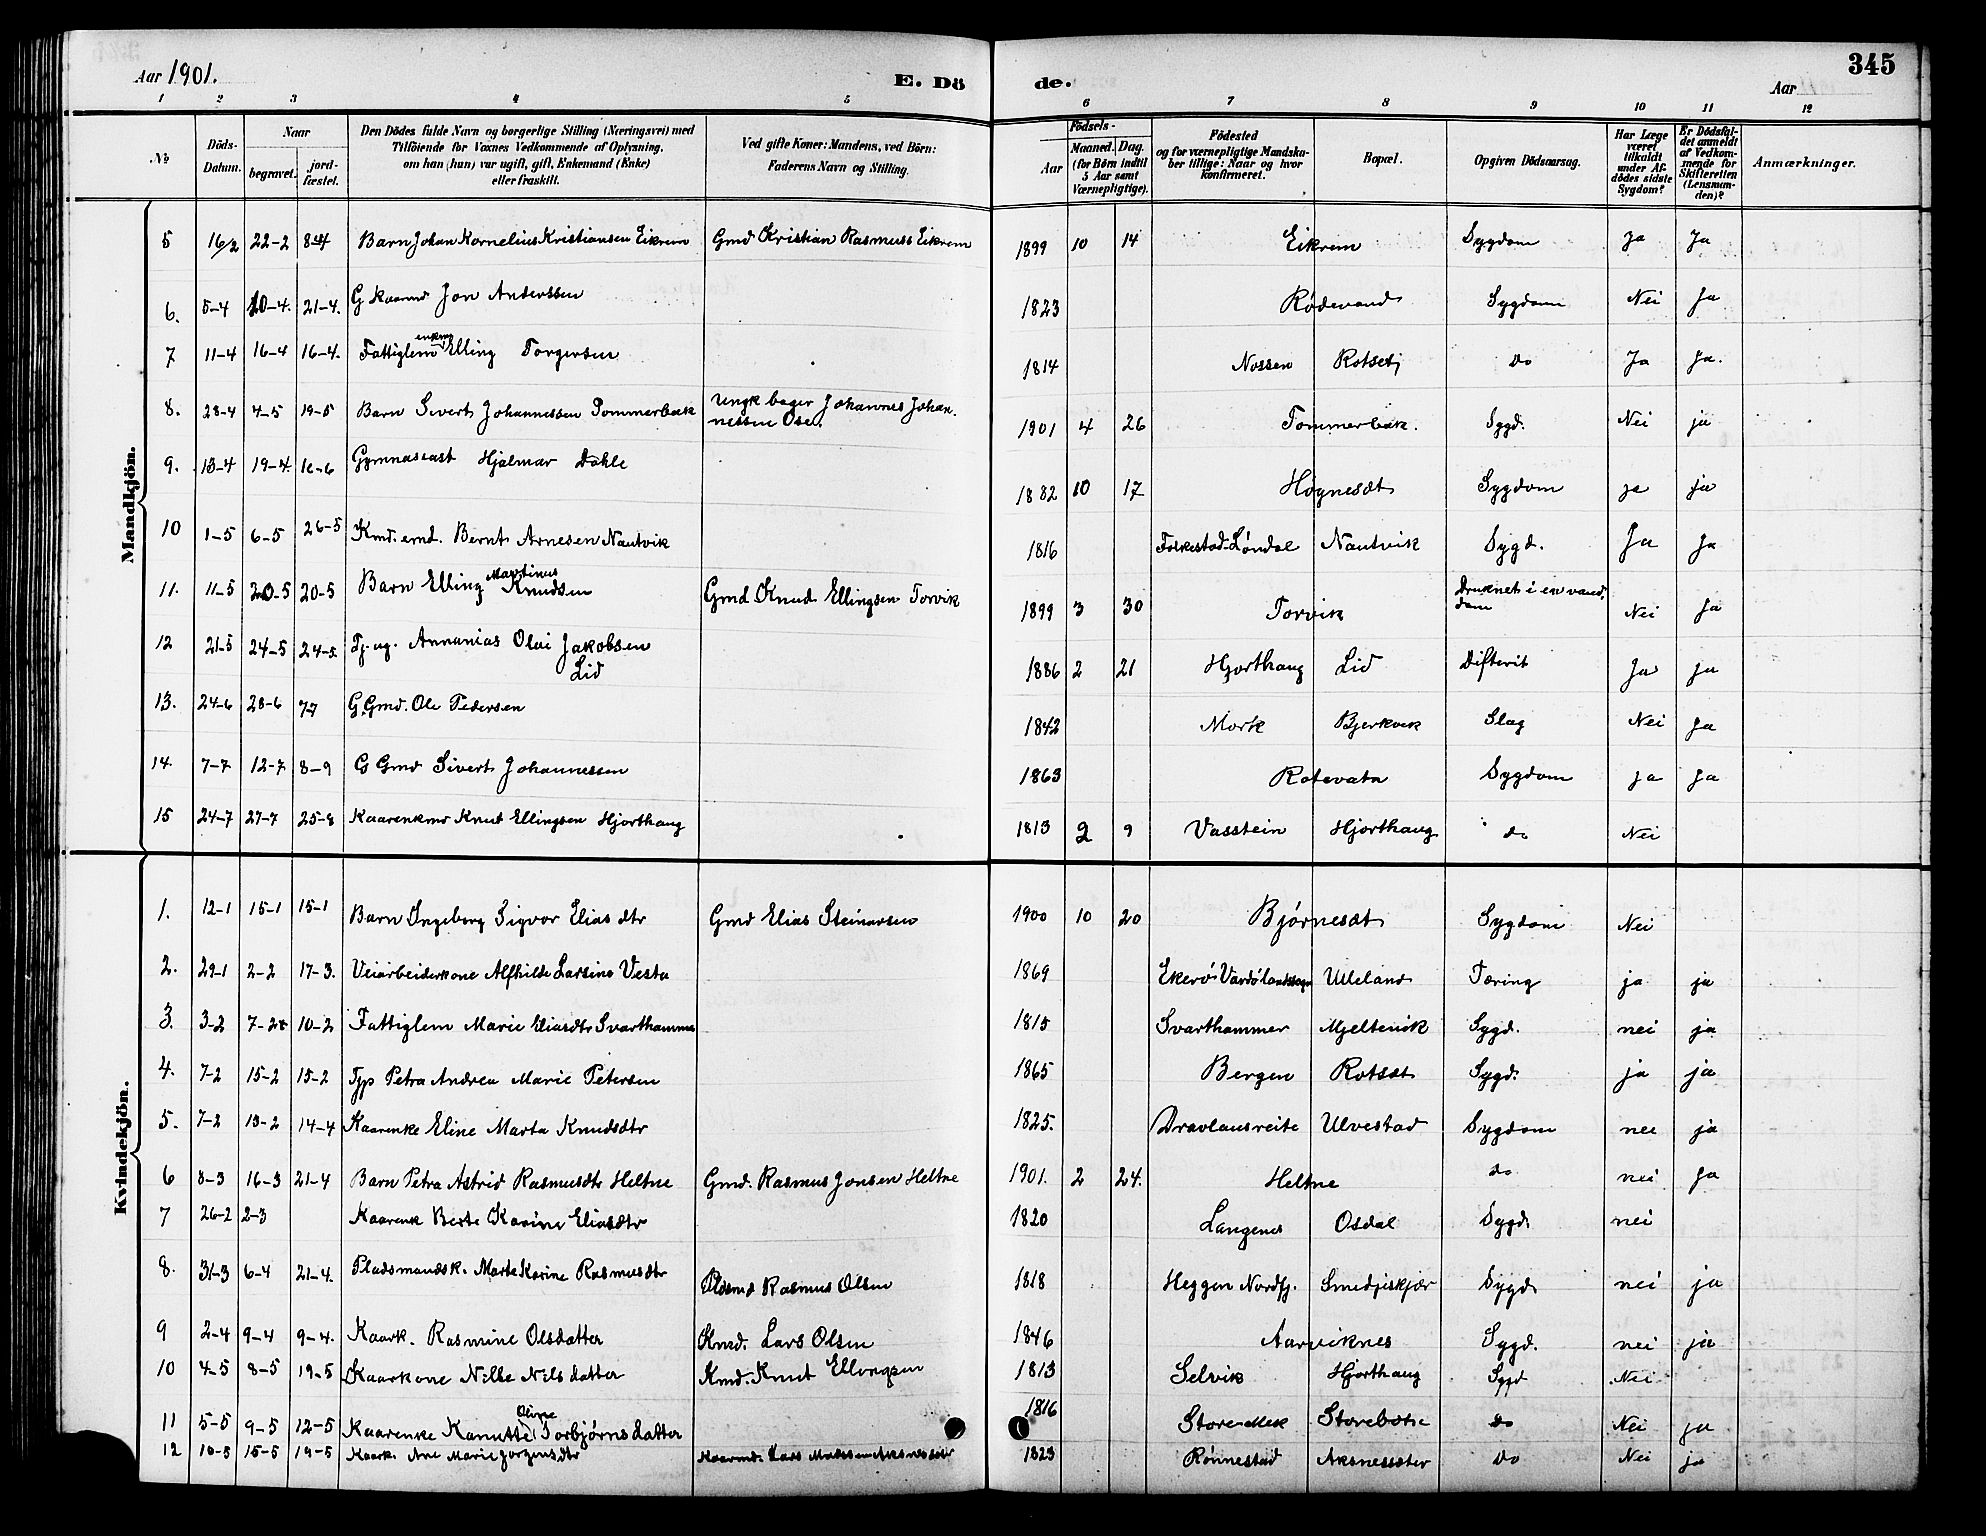 Aar 1901.
E. Dö de.
Aar
345
1 2 3 4 5 6 7 8 9 10 11 12
No
Döds-Datum.
Naar
begravet.
jord-fæstet.
Den Dödes fulde Navn og borgerlige Stilling (Næringsvei) med
Tilföiende for Voxnes Vedkommende af Oplysning,
om han (hun) var ugift, gift, Enkemand (Enke)
eller fraskilt.
Ved gifte Koner: Mandens, ved Börn:
Faderens Navn og Stilling.
Födsels-
Aar
Maaned. Dag.
(for Börn indtil
5 Aar samt
Værnepligtige).
Födested
og for værnepligtige Mandskaber tillige: Naar og hvor konfirmeret.
Bopæl.
Opgiven Dödsaarsag.
Har Læge været tilkaldt under Afdödes sidste Sygdom?
Er Dödsfaldet anmeldt af Vedkommende for Skifteretten (Lensmanden)?
Anmærkninger.
Mandkjön.
5 16/2 22-2 8-4 Barn Johan Kornelius Kristiansen Eikrem Gmd Kristian Rasmuss Eikrem 1899 10 14 Eikrem Sygdom ja Ja
6. 5-4 10-4. 21-4. G Kaarmd Jon Anderssen 1823 Rødevand Sygdom Nei Ja
7 11-4 16-4 16-4. Fattiglem enkmd Elling Torgersen 1814 Nossen Rotset do Ja Ja.
8. 28-4 4-5 19-5 Barn Sivert Johannessen Tommerbak Ungk bager Johannes Johannessen Ose. 1901 4 26 Tommerbak. Sygd. Nei ja
9. 13-4 19-4. 16-6 Gymnasiast Hjalmar Dahle 1882 10 17 Høgnesæt Sygdom ja ja
10 1-5 6-5 26-5 Kmd. emd. Bernt Arnesen Nautvik 1816 Folkestad-Løndal Nautvik Sygd. Ja Ja
11. 11-5 20-5 20-5 Barn Elling Martinus Knudsen Gmd Knud Ellingsen Torvik 1899 3 30 Torvik Druknet i en vanddam Nei Ja
12 21-5 24-5 24-5. Tj. ug. Annanias Olai Jakobsen Lid 1886 2 21 Hjorthaug Lid Difterit Ja Ja
13. 24-6 28-6 7-7 G. Gmd. Ole Pedersen 1842 Mork Bjerkvik Slag Nei Ja
14 7-7 12-7 8-9 G Gmd Sivert Johannessen 1863 Rotevatn Sygdom ja Ja
15 24-7 27-7 25-8 Kaarenkmd Knut Ellingsen Hjorthaug 1813 2 9 Vasstein Hjorthaug do Nei
Kvindekjön.
1. 12-1 15-1 15-1 Barn Ingeborg Sigvor Elias dtr Gmd Elias Steinarsen 1900 10 20 Bjørnesæt Sygdom Nei
2. 29-1 2-2 17-3. Veiarbeiderkone Alfhilde Larsine Vesta 1869 Ekerö Vardölandssogn Ulleland Tæring ja ja
3. 3-2 7-2 10-2 Fattiglem Marie Eliasdtr Svarthammer 1815 Svarthammer Mjeltevik Sygd. nei ja
4. 7-2 15-2 15-2 Tjp Petra Andrea Marie Petersen 1865 Bergen Rotsæt Sygd. ja ja
5. 7-2 13-2 14-4 Kaarenke Eline Marta Knudsdtr 1825. Dravlausreite Ulvestad Sygdom nei ja
6 8-3 16-3 21-4 Barn Petra Astrid Rasmusdtr Heltne Gmd. Rasmus Jonsen Heltne 1901. 2 24. Heltne do nei Ja
7 26-2 2-3 Kaarenk Berte Karine Eliasdtr 1820 Langenes Osdal Sygd nei
8. 31-3 6-4 21-4. Pladsmandsk. Marte Karine Rasmusdtr Pladsmd Rasmus Olsen 1818 Heggen Nordfj. Smedjiskjær Sygd nei ja
9 2-4 9-4 9-4. Kaark. Rasmine Olsdatter Kmd. Lars Olsen 1846 Aarviknes Sygd. nei ja
10 4-5 8-5 19-5 Kaarkone Nille Nils datter Kmd. Knut Ellingsen 1813 Selvik Hjorthaug Sygd Nei
11 5-5 9-5 12-5 Kaarenke Kanutte Oline Torbjørns datter 1816 Store-Mek Storebotn do Nei ja
12 10-5 15-5 19-5 Kaark. Ane Marie Jorgensdtr Kaarmd. Lars Aksnessæter 1823 Rønnestad Aksnessæter do Nei ja